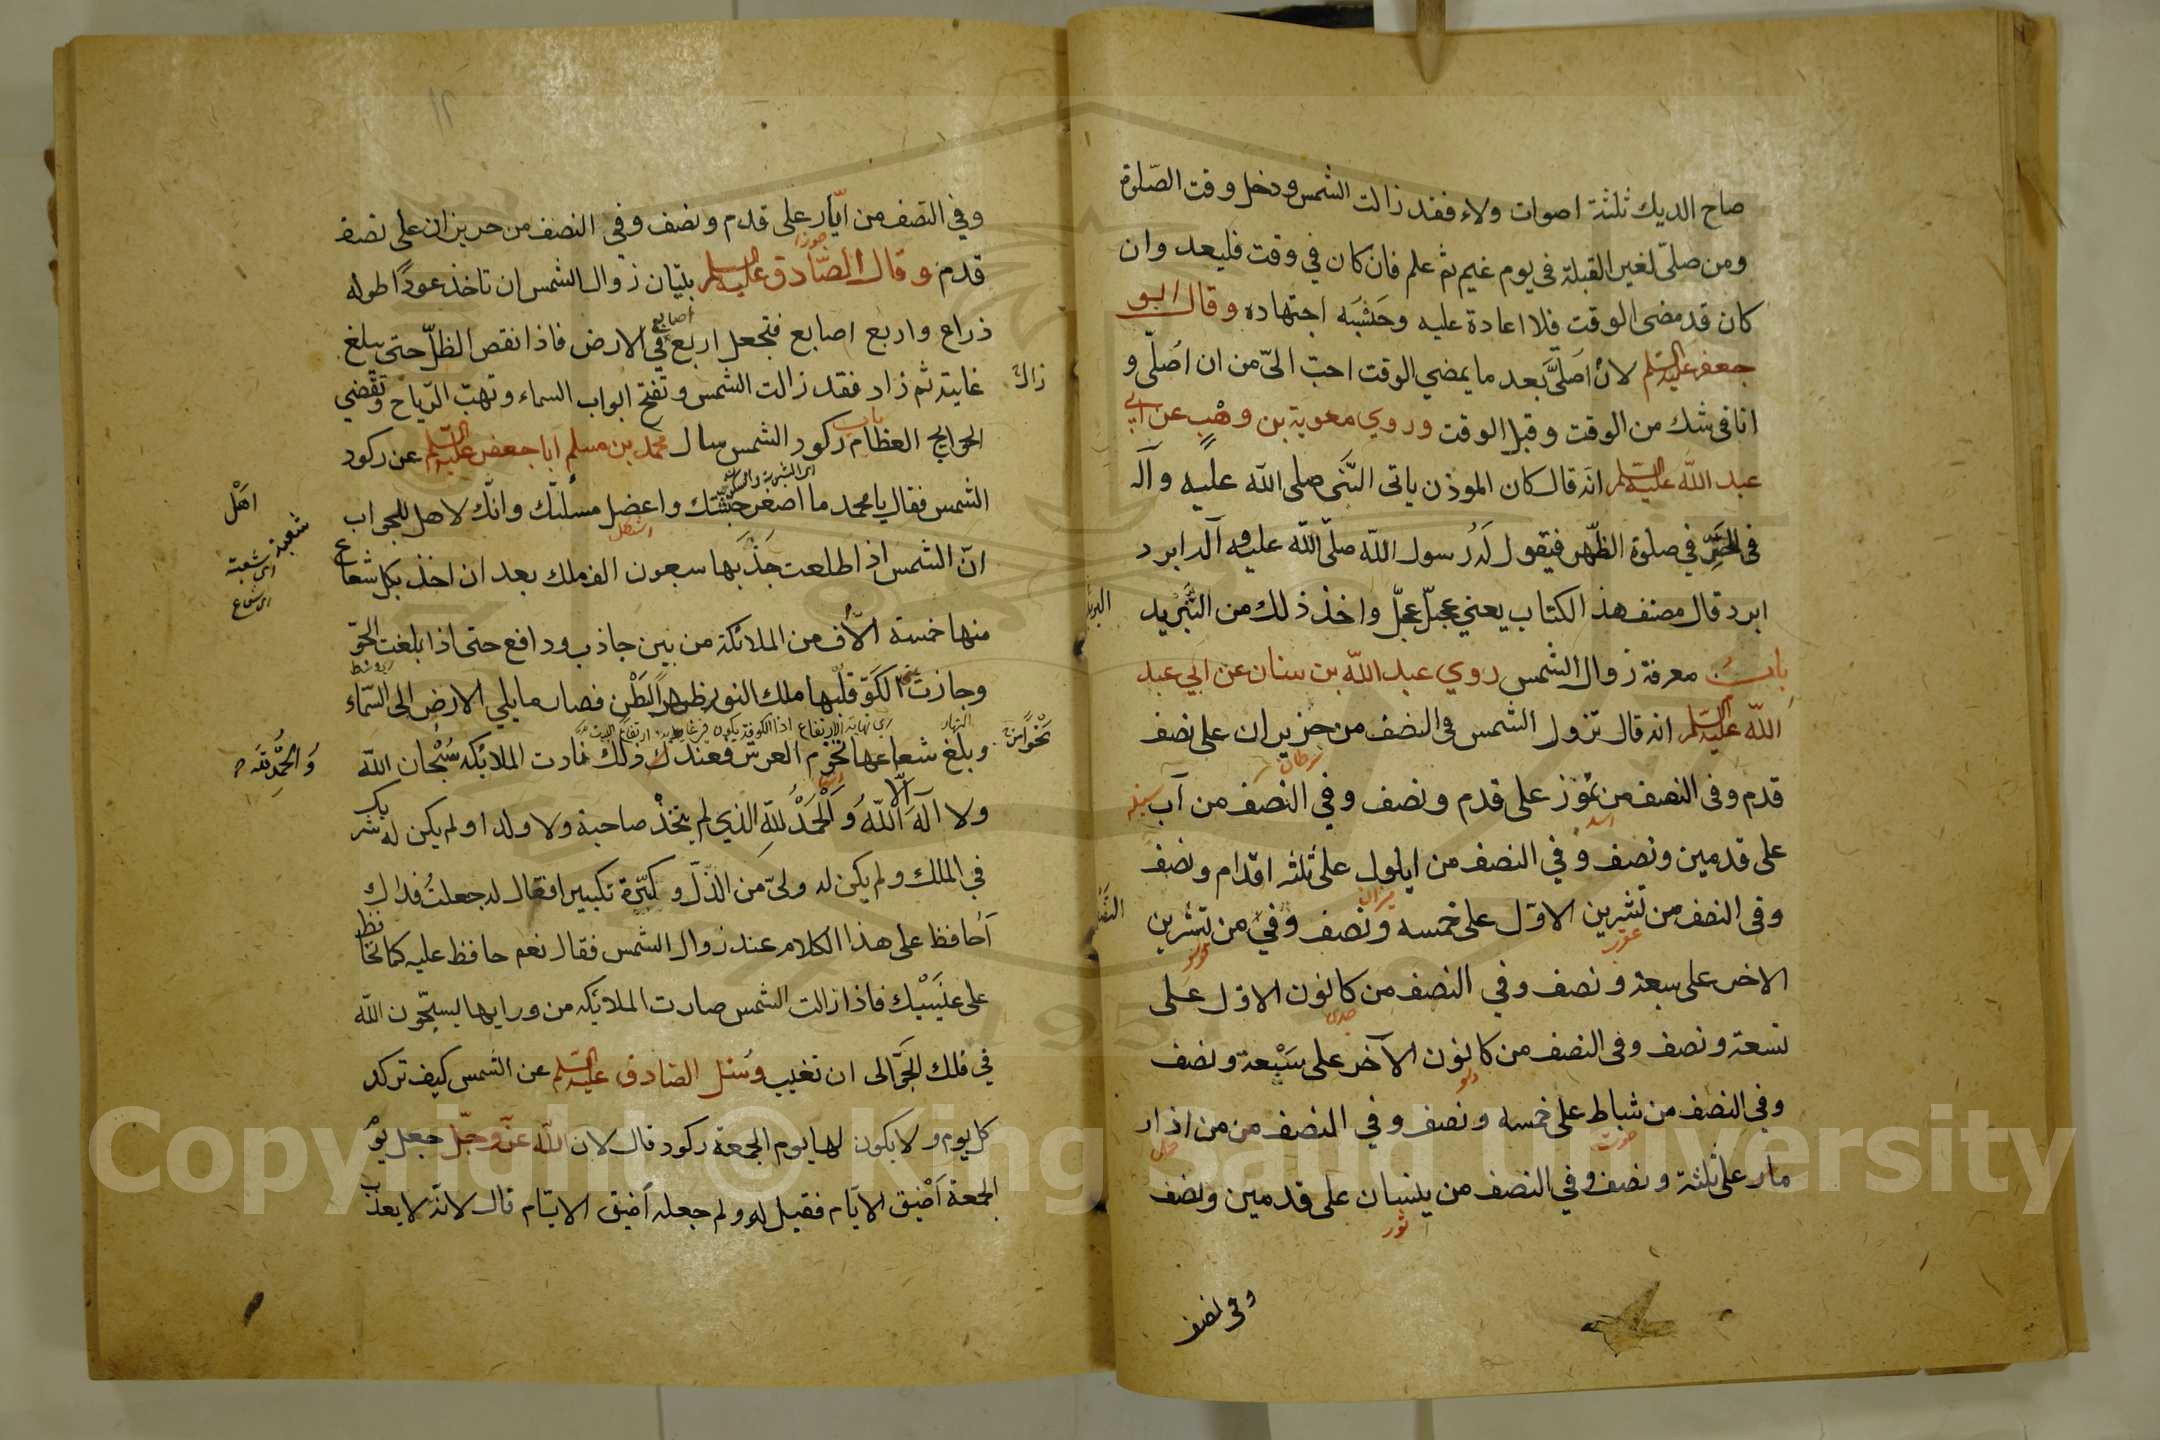 صاح الديك ثلثة اصوات ولاء فقد زالت الشمس ودخل وقت الصّلوة
ومن صلّى لغير القبلة في يوم غيم ثم علم فان كان في وقت فليعد وان
كان قد مضى الوقت فلا اعادة عليه وحَسْبَه اجتهاده وقال ابو
جعفر عليه السلم لان اُصَلّيَ بعد ما يمضي الوقت احبّ اليّ من ان اُصَلّي و
انا في شك من الوقت وقبل الوقت وروي معوية بن وهْب عن ابي
عبد الله عليه السلم انه قال كان الموذن ياتى النَّبي صلى الله عليه وآله
في الحَرِّ في صلوة الظّهر فيقول لَه رسول الله صلّى الله عليه وآله ابرد
ابرد قال مصنف هذ الكتاب يعني عجّل عجّل واخذ ذلك من التَّبْريد
باب معرفة زوال الشمس روي عبد الله بن سنان عن ابي عبد
الله عليه السلم انه قال تزول الشمس في النصف من حزيران على نصف
سرطان
قدم وفى النصف من تمّوز على قدم ونصف وفي النصف من آب
سنبله
اسد
على قدمين ونصف وفي النصف من ايلول على ثلثه اقدام ونصف
ميزان
وفى النصف من تشرين الاوّل على خمسه ونصف وفي من تشرين
عقرب
قوس
الاخر على سبعة ونصف وفي النصف من كانون الاوّل على
جدى
تسعة ونصف وفى النصف من كانون الآخر على سَبْعة ونصف
دلو
وفي النصف من شباط على خمسه ونصف وفي النصف من من اذار
حوت
حمل
مار على ثلثة ونصف وفي النصف من نيسان على قدمين ونصف
ثور
وفى نصف
١٢
وفي النصف من ايّار على قدم ونصف وفي النصف من حزيران على نصف
جوزا
قدم وقال الصّادق عليه السلم بليّان زوال الشمس ان تاخذ عودًا طوله
ذراع واربع اصابع فتجعل اربع اصابع في الارض فاذا نقص الظلّ حتى يبلغ
غايته ثم زاد فقد زالت الشمس وتفتح ابواب السماء وتهبّ الرّياح وتقْضي
الحوايج العظام باب ركود الشمس سال محمد بن مسلم ابا جعفر عليه السلم عن ركود
الشمس فقال يا محمد ما اصغر جثّتك واعضل مسئلتك وانّك لاهل للجواب
اشكل
انّ الشمس اذ اطلعت جَذَبَها سبعون الف ملك بعد ان اخذ بكل شعاع
منها خمسة الآف من الملائكة من بين جاذب ودافع حتى اذا بلغت الجوّ
وجازت الكوّ قلّبها ملك النور ظهرًا لبَطْن فصار ما يلي الارض الى السّماء
وبلغ شعاعها تخوم العرش فعند ذلك نادت الملائكه سُبْحان الله
ولا آله الّا الله وَالْحَمْدُ لله الذي لم يتخذْ صاحبة ولا ولدا ولم يكن له شريك
في الملك ولم يكن له وليّ من الذّلّ وكبّرهْ تكبيرا فقال له جعلتُ فداك
اَحافظ على هذا الكلام عند زوال الشمس فقال نعم حافظ عليه كما تحافظ
على عَيْنَيْك فاذا زالت الشمس صارت الملائكه من ورايها يسبّحون الله
في فلك الجَوّ الى ان تغيب وسُئل الصّادق عليه السلم عن الشمس كيف تركد
كل يوم ولا يكون لها يوم الجمعة ركود قال لان الله عزّ وجلّ جعل يوْم
الجمعة اَضْيق الايّام فقيل له ولم جعله اَضيق الايّام قال لانّه لا يعذّب
اهْل
شعبة
اى شعبة
اى شعاع
Copyright © King Saud University
1957